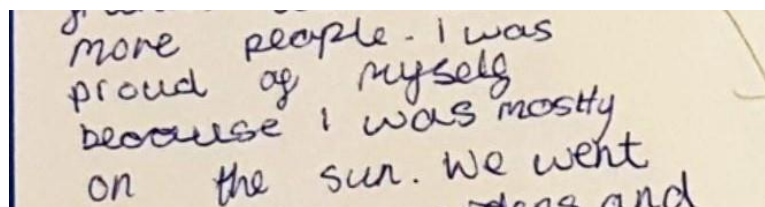 more people. I was
proud of myself
because I was mostly
on the sun. We went
and